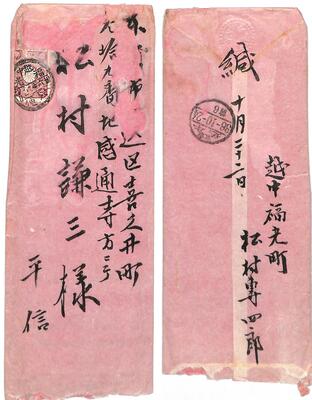 東京市牛込区喜久井町
九拾九番地感通寺方ニテ
松村謙三様
平信
緘
十月二十二日
越中福光町
松村専四郎